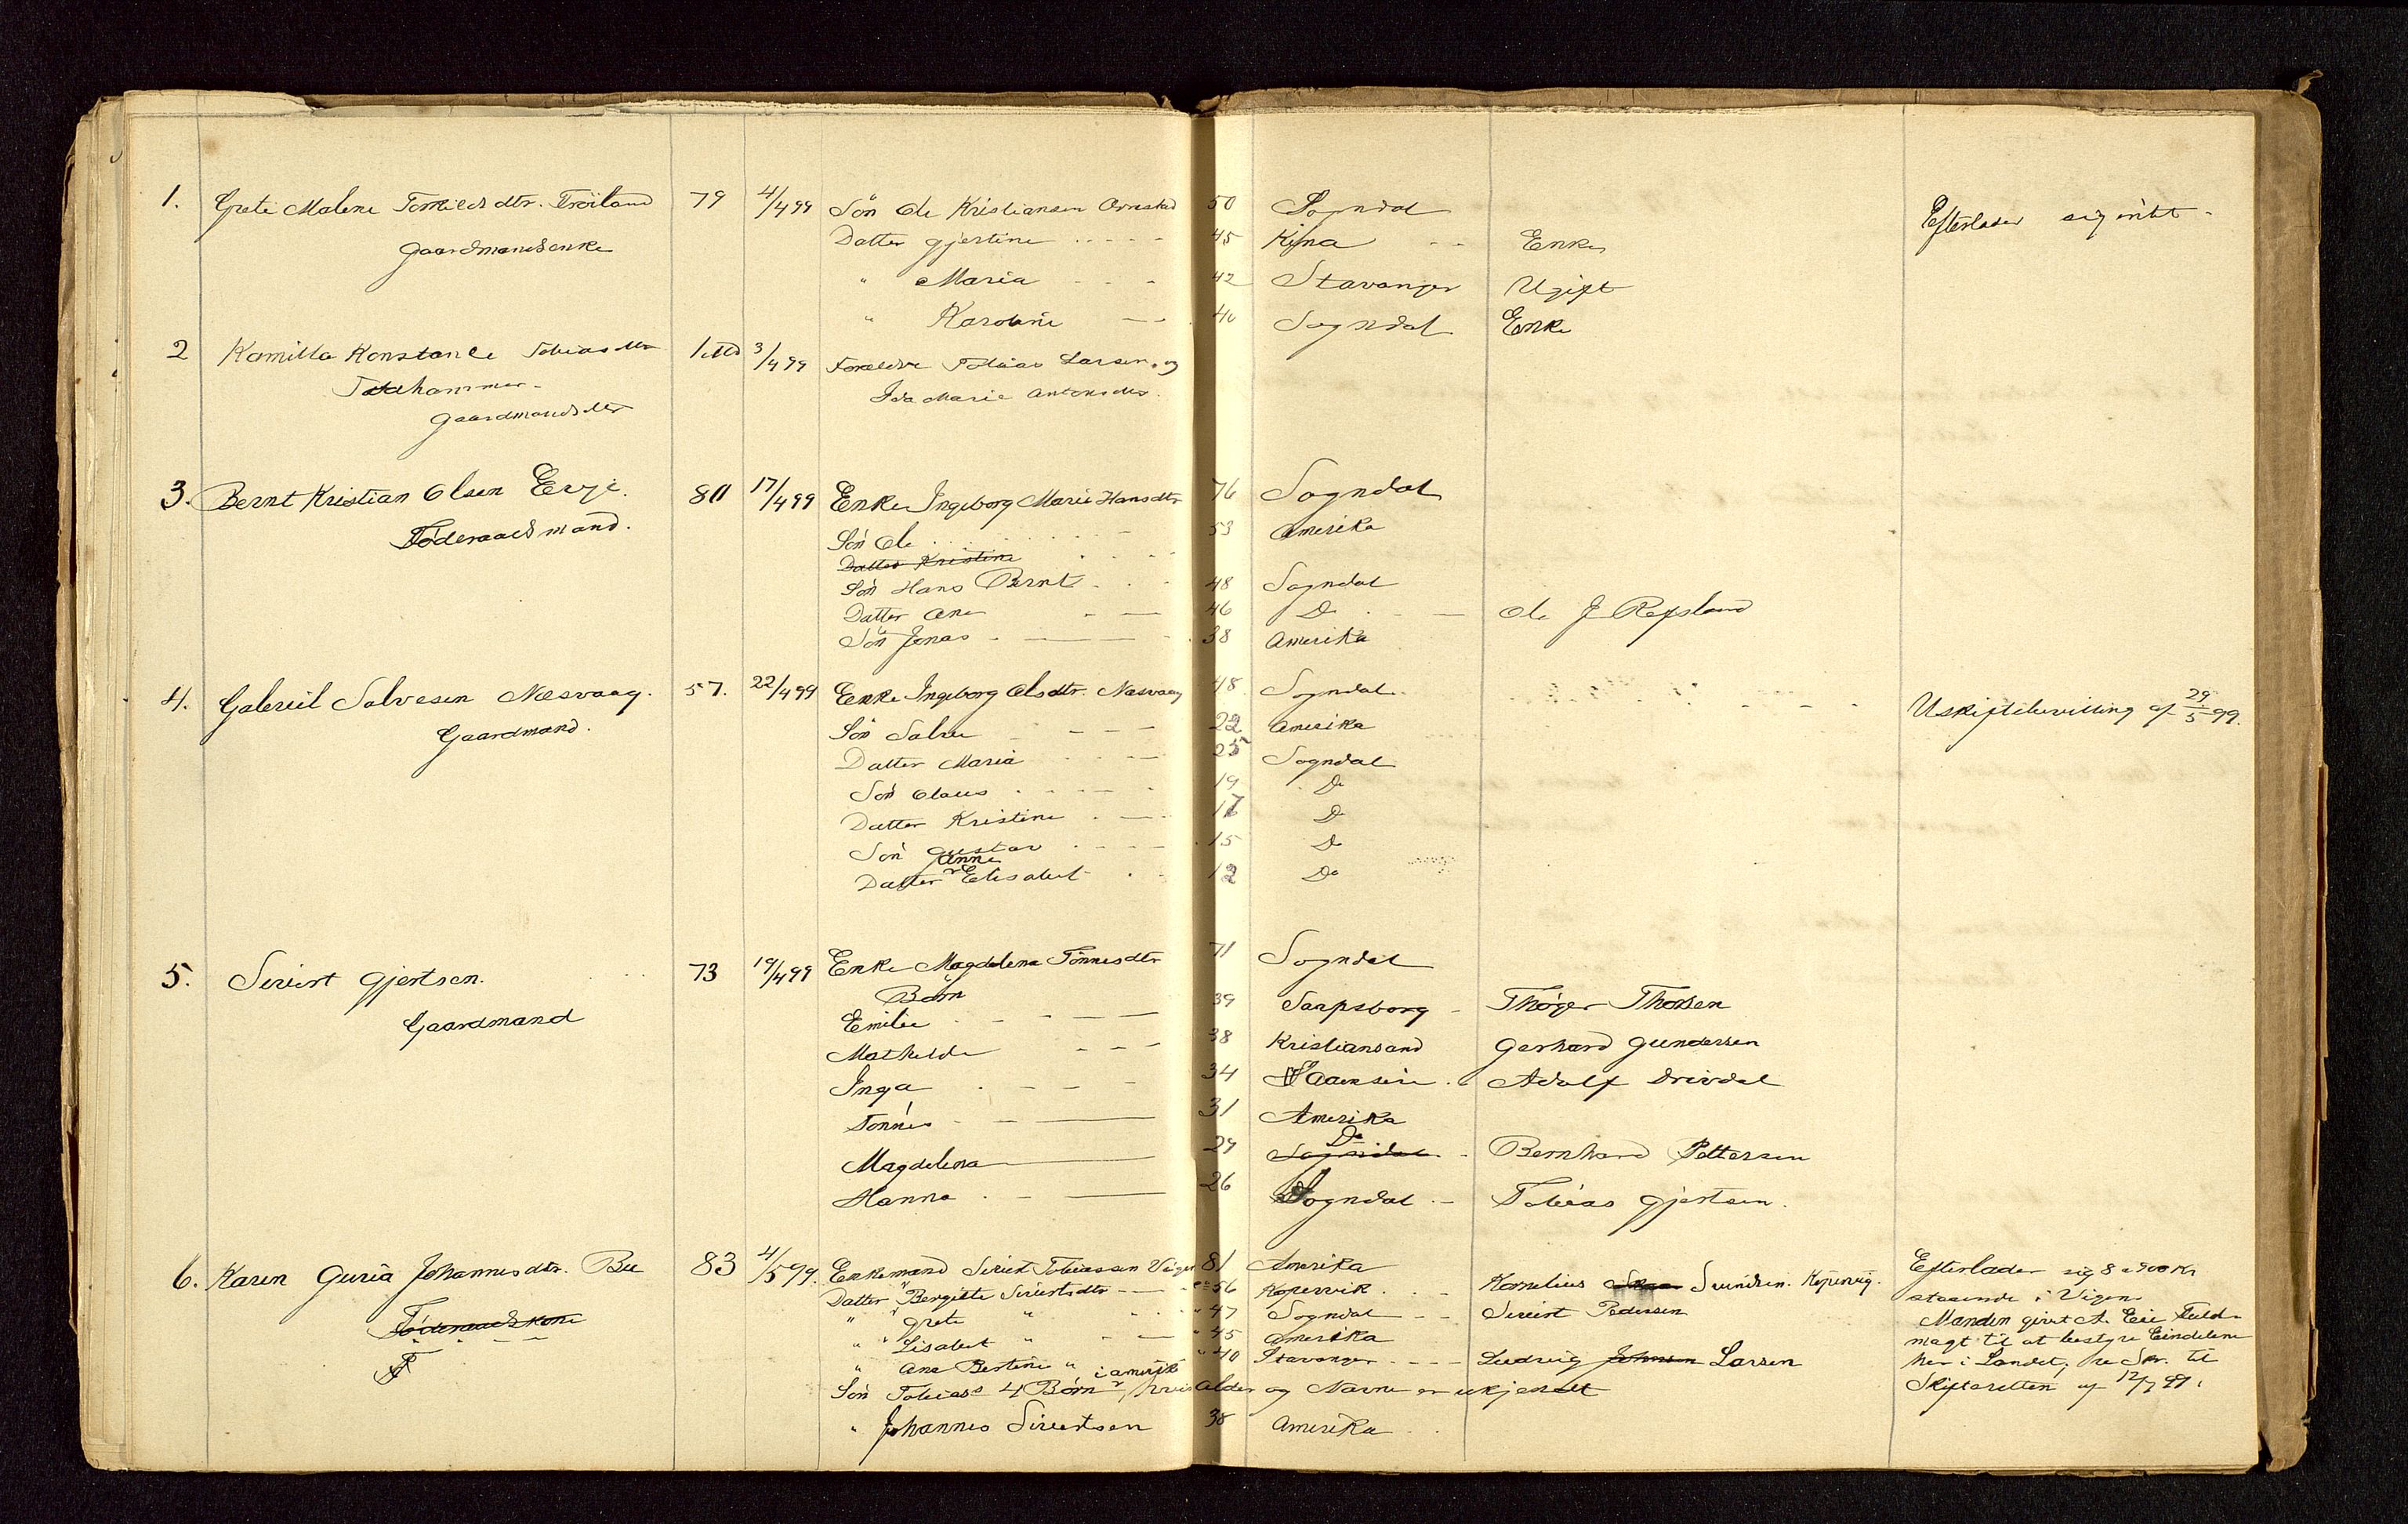 1. Grete Malene Torkildsdtr. Tröiland 79 4/4 99 Sön Ole Kristiansen Ovrestad 50 Sogndal Efterlader sig intet.
Gaardmandsenke Datter Gjertine 45 Kina Enke
" Maria 42 Stavanger Ugift
" Karoline 40 Sogndal Enke
2 Kamilla Konstance Tobiasdtr 1 Md 3/4 99 Forældre Tobias Larsen og
Ida Marie Antonsdtr.
Gaardmandsdtr
3. Bernt Kristian Olsen Eeg 80 17/4 99 Enke Ingeborg Marie Hansdtr 76 Sogndal
Föderaadsmand. Sön Ole 53 Amerika
Datter Kristine
Sön Hans Bernt 48 Sogndal
Datter Ane 46 Do Ole J Refsland
Sön Jonas 38 Amerika
4. Gabriel Salvesen Nesvaag. 57. 22/4 99 Enke Ingeborg Olsdtr. Nesvaag 48 Sogndal Uskiftebevilling af 29/5 99.
Gaardmand. Sön Salve 22 Amerika
Datter Maria 25 Sogndal
Sön Olaus 19 Do
Datter Kristine 17 Do
Sön Gustav 15 Do
Anne
Datter Elisabet 12 Do
5. Sivert Gjertsen. 73 19/4 99 Enke Magdalena Tönnesdtr 71 Sogndal
Gaardmand Börn
Emilie 39 Sarpsborg Thöger Thorsen
Mathilde 38 Kristiansand Gerhard Gundersen
Inga 34 Adolf Drivdal
Tönnes 31 Amerika
Do
Magdalena 29 Sogndal Bernhard Pettersen
Hanna 26 Sogndal Tobias Gjertsen.
6. Karen Guria Johannesdtr. Bu 83 4/5 99. Enkemand Sivert Tobiassen 81 Amerika Efterlader sig 8 a 900 Kr
Datter Bergitte Sivertsdtr 56 Kopervik Kornelius Svendsen. Kopervig. staaende i Vigen
Föderaadskone " Grete " 47 Sogndal Sivert Pedersen Manden givet A. Eie Fuld-
" Lisabet " 45 Amerika magt til at bestyre Eiendelene
" Ane Bertine " 40 Stavanger Ludvig Johnsen Larsen her i Landet, se Skr. til
Sön Tobias's 4 Börn i Amerika, hvis Alder og Navne er ukjendt Skifteretten af 12/7 99.
" Johannes Sivertsen 38 Amerika